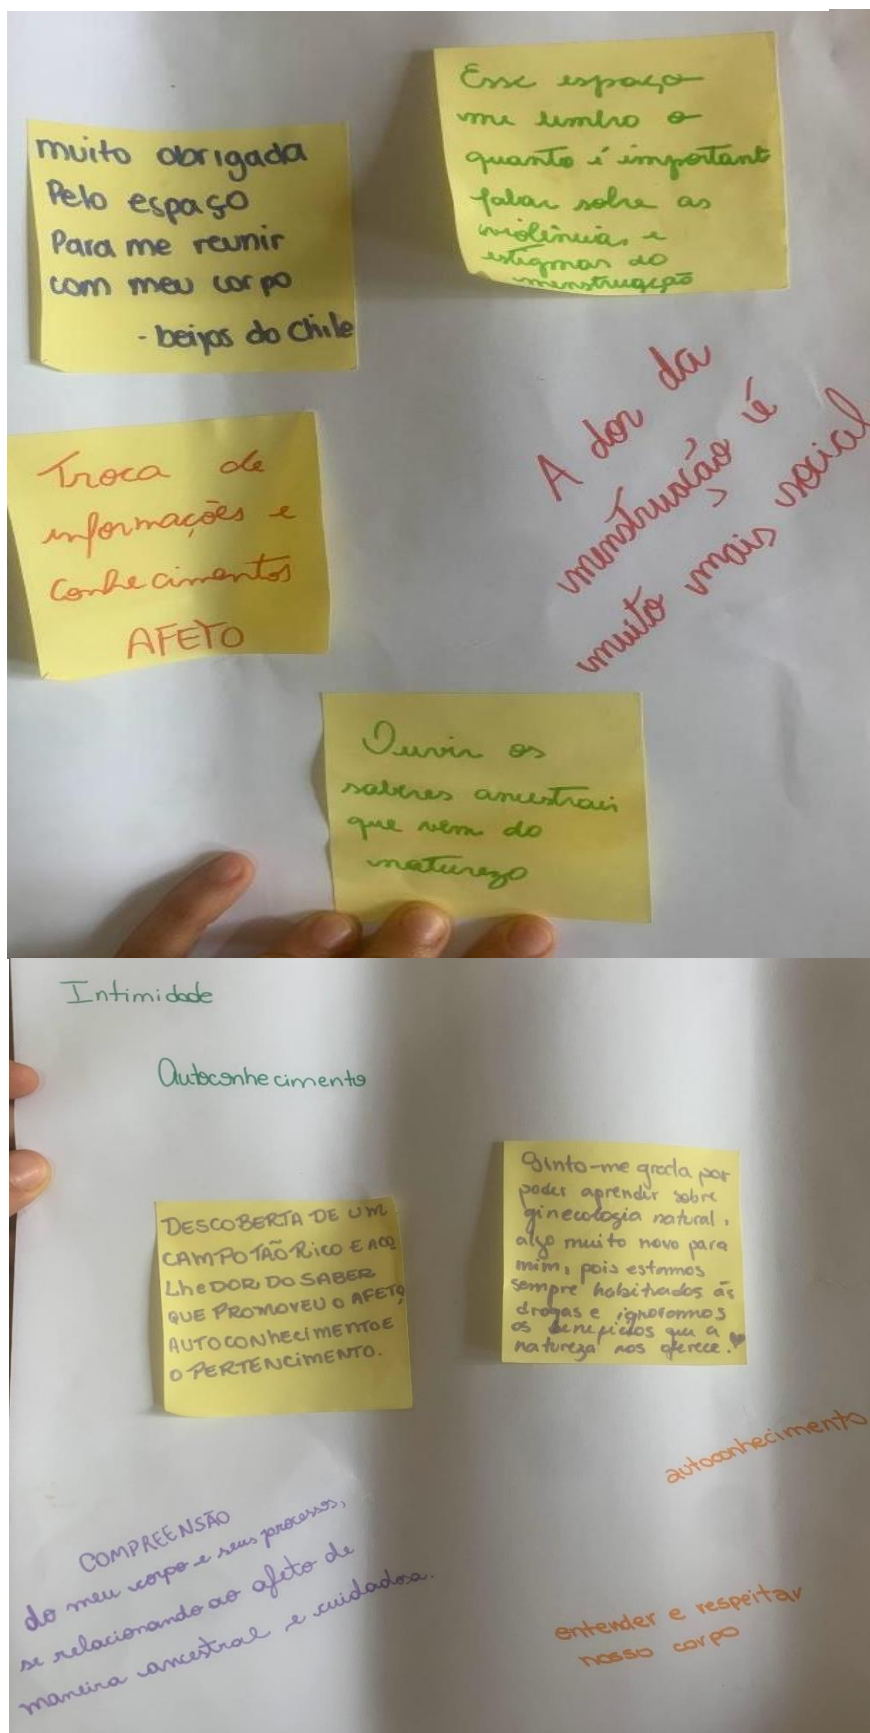 muito obrigada
Pelo espaço
Para me reunir
com meu corpo
- beijos do Chile
Esse espaço
me lembro o
quanto é important
falar sobre as
violências e
estigmas do
menstruação
Troca de
informações e
conhecimentos
AFETO
A dor da
menstruação é
muito mais social
Ouvir os
saberes ancestrais
que vem do
naturezo
Intimidade
Autoconhecimento
DESCOBERTA DE UM
CAMPO TÃO RICO E ACO
LHEDOR DO SABER
QUE PROMOVEU O AFETO,
AUTOCONHECIMENTO E
O PERTENCIMENTO.
Sinto-me grata por
poder aprender sobre
ginecologia natural,
algo muito novo para
mim, pois estamos
sempre habituados às
drogas e ignoramos
os benefícios que a
natureza nos oferece.
autoconhecimento
COMPREENSÃO
do meu corpo e seus processos,
se relacionando ao afeto de
maneira ancestral e cuidadosa.
entender e respeitar
nosso corpo